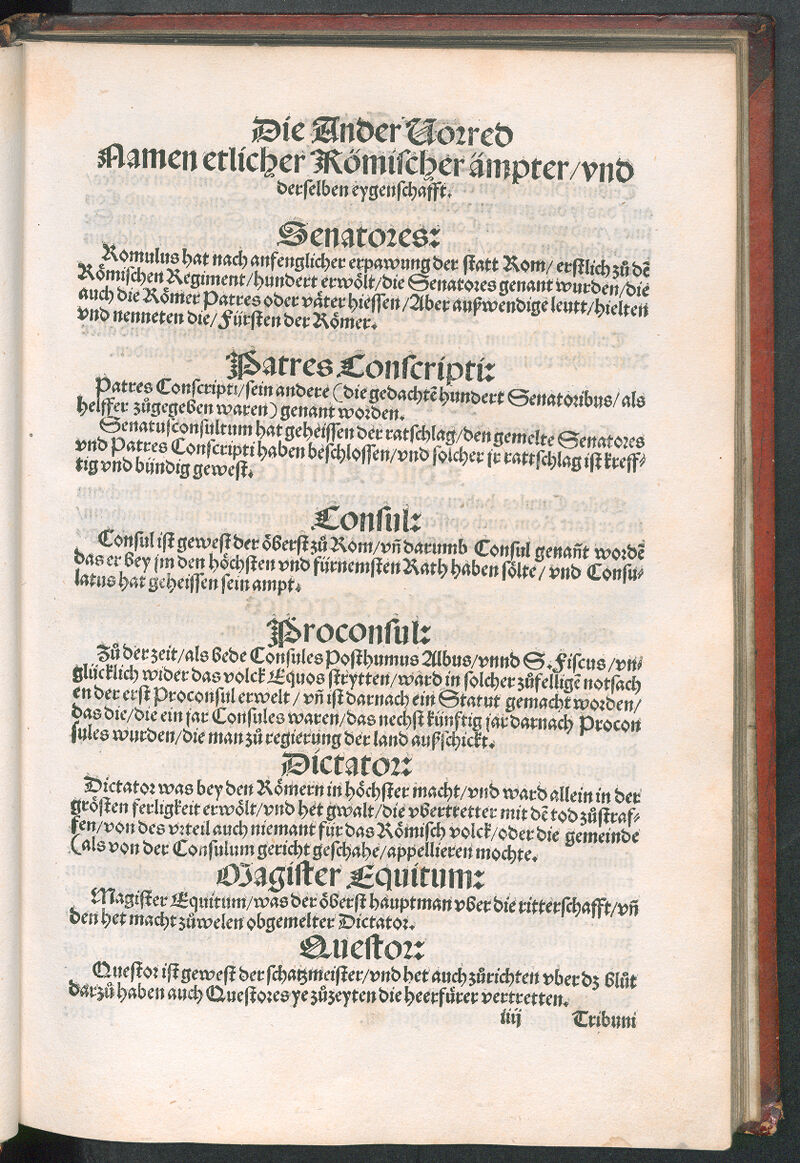 Die Ander Vorred
Namen etlicher Römischer ämpter/vnd
derselben eygenschafft.
Senatores:
Romulus hat nach anfenglicher erpawung der statt Rom/ erstlich zů dē
Römischen Regiment/hundert erwölt/die Senatores genant wurden/die
auch die Römer Patres oder väter hiessen/Aber außwendige leutt/hielten
vnd nenneten die/Fürsten der Römer.
Patres Conscripti:
Patres Conscripti/sein andere (die gedachtē hundert Senatoribus/als
helffer zůgegeben waren) genant worden.
Senatusconsultum hat geheissen der ratschlag/den gemelte Senatores
vnd Patres Conscripti haben beschlossen/vnd solcher jr rattschlag ist kreff⸗
tig vnd bündig gewest.
Consul:
Consul ist gewest der öberst zů Rom/vñ darumb Consul genañt wordē
das er bey jm den höchsten vnd fürnemsten Rath haben sölte/vnd Consu⸗
latus hat geheissen sein ampt.
Proconsul:
Zů der zeit/als bede Consules Posthumus Albus/vnnd S. Fiscus/vn⸗
glücklich wider das volck Equos strytten/ward in solcher zůfelligē notsach
en der erst Proconsul erwelt/vñ ist darnach ein Statut gemacht worden/
das die/die ein jar Consules waren/das nechst künftig jar darnach Procon
sules wurden/die man zů regierung der land außschickt.
Dictator:
Dictator was bey den Römern in höchster macht/vnd ward allein in der
grösten ferligkeit erwölt/vnd het gwalt/die vbertretter mit dē tod zůstraf⸗
fen/von des vrteil auch niemant für das Römisch volck/oder die gemeinde
(als von der Consulum gericht geschahe/appellieren mochte.
Magister Equitum:
Magister Equitum/was der öberst hauptman vber die ritterschafft/vñ
den het macht zůwelen obgemelter Dictator.
Questor:
Questor ist gewest der schatzmeister/vnd het auch zůrichten vber dz blůt
darzů haben auch Questores ye zůzeyten die heerfürer vertretten.
iiij Tribuni